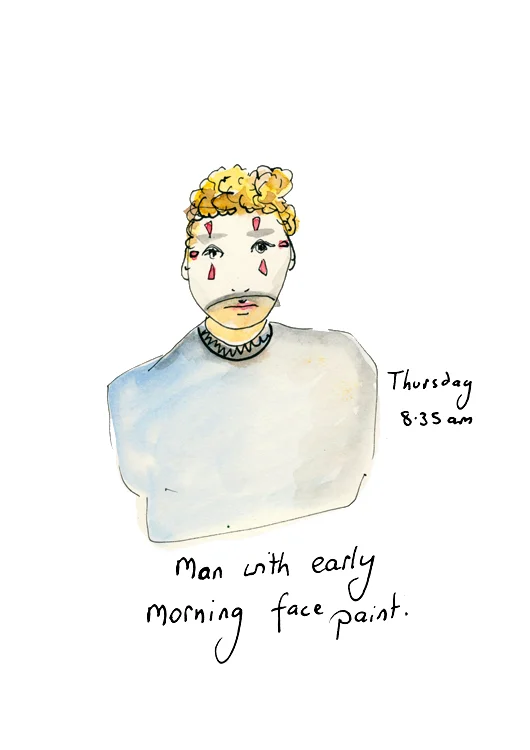 Thursday
8.35 am
Man with early
morning face paint.